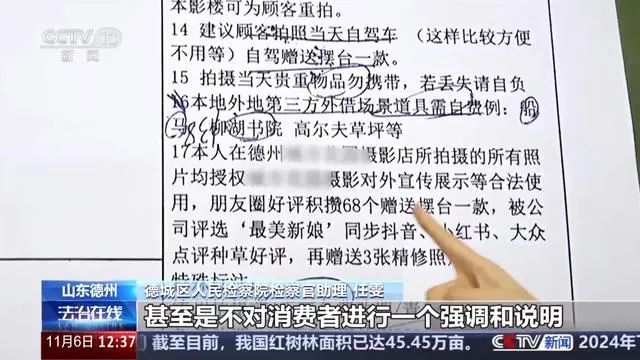 CCTV 13
新闻
本影楼可为顾客重拍。
14 建议顾客拍照当天自驾车 （这样比较方便
不用等）自驾赠送摆台一款。
15 拍摄当天贵重物品勿携带，若丢失请自负
16本地外地第三方外借场景道具需自费例：船
马 柳湖书院 高尔夫草坪等
17本人在德州 摄影店所拍摄的所有照
片均授权 摄影对外宣传展示等合法使
用，朋友圈好评积攒68个赠送摆台一款，被公
司评选‘最美新娘’同步抖音、小红书、大众
点评种草好评，再赠送3张精修照
特殊标注
山东德州
德城区人民检察院检察官助理 任雯
法治在线
甚至是不对消费者进行一个强调和说明
11月6日 12:37
截至目前，我国红树林面积已达45.45万亩。
CCTV 新闻
2024年